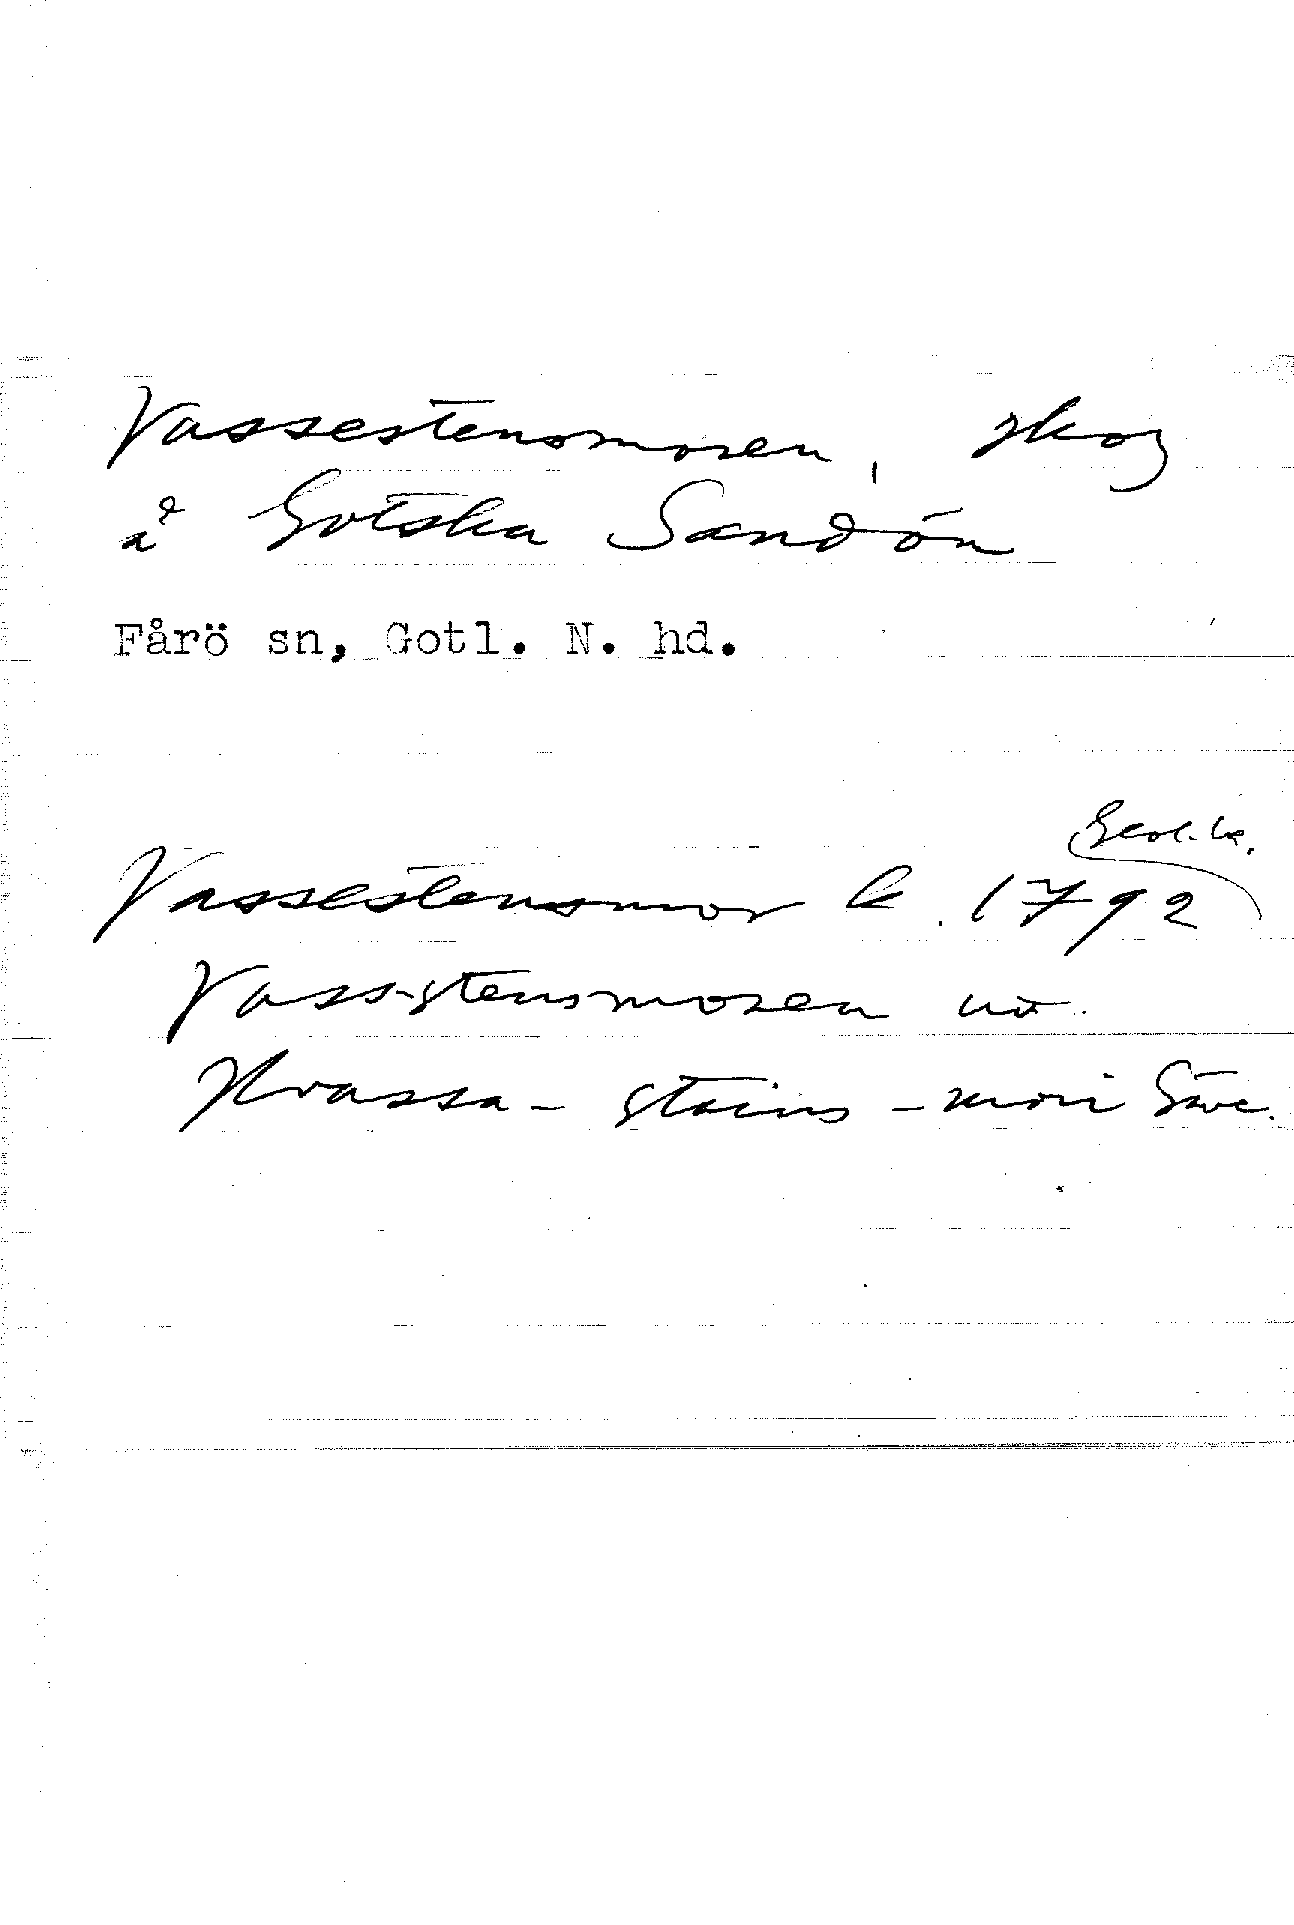 Vassestensmoren, skog
å Gotska Sandön
Fårö sn, Gotl. N. hd.
Geol. k.
Vassestensmor k. 1792
Vass-stensmoren
Hvassa-stains-mori Säve.